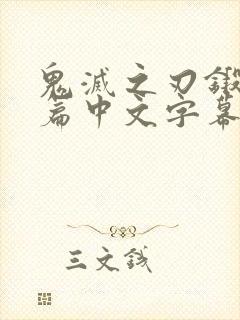 鬼滅之刃鍛
篇中文字幕
三文錢